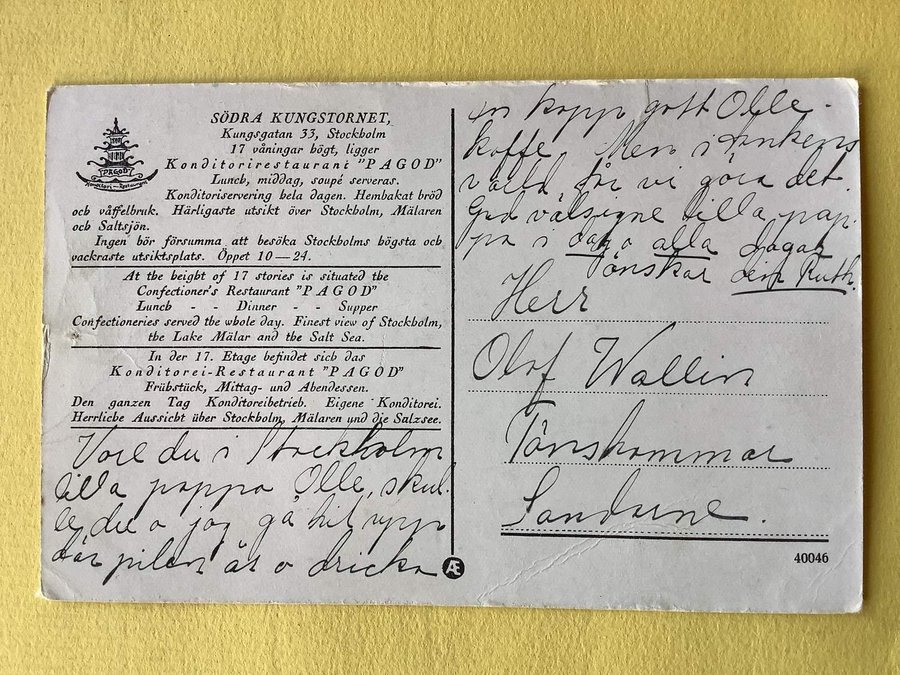 PAGOD
Konditori-Restaurant
SÖDRA KUNGSTORNET,
Kungsgatan 33, Stockholm
17 våningar högt, ligger
Konditorirestaurant "PAGOD"
Lunch, middag, soupé serveras.
Konditoriservering hela dagen. Hembakat bröd
och våffelbruk. Härligaste utsikt över Stockholm, Mälaren
och Saltsjön.
Ingen bör försumma att besöka Stockholms högsta och
vackraste utsiktsplats. Öppet 10—24.
At the height of 17 stories is situated the
Confectioner's Restaurant "PAGOD"
Lunch - - Dinner - - Supper
Confectioneries served the whole day. Finest view of Stockholm,
the Lake Mälar and the Salt Sea.
In der 17. Etage befindet sich das
Konditorei-Restaurant "PAGOD"
Frühstück, Mittag- und Abendessen.
Den ganzen Tag Konditoreibetrieb. Eigene Konditorei.
Herrliche Aussicht über Stockholm, Mälaren und die Salzsee.
Vore du i Stockholm
lilla pappa Olle, skul-
le du o jag gå hit upp
där pilen är o dricka
en kopp gott Olle-
kaffe. Men i tankens
värld får vi göra det.
Gud välsigne lilla pap-
pa i dag o alla dagar
önskar din Ruth.
Herr
Olof Wallin
Tönshammar
Sandarne.
Æ
40046